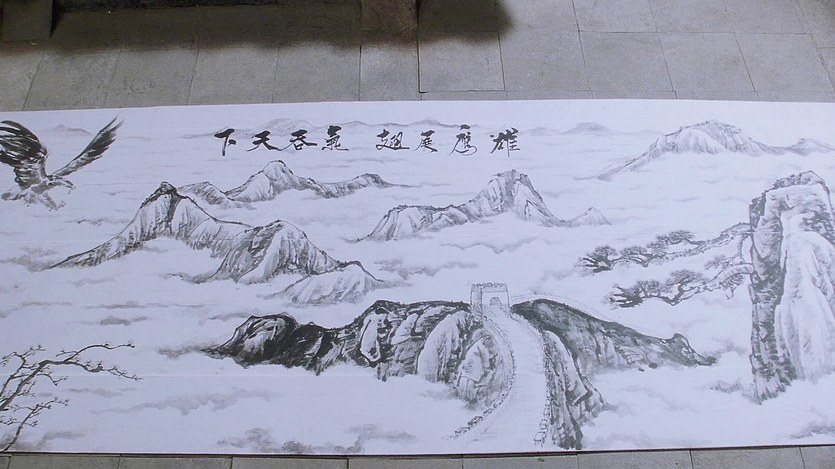 雄鹰展翅 氣吞天下